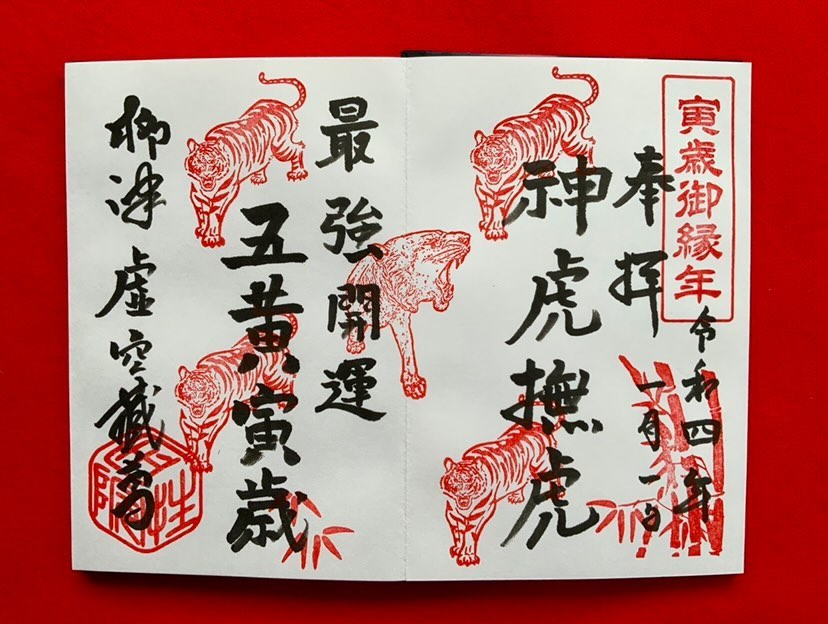 寅歳御縁年
奉拝
令和四年
一月一日
神虎撫虎
最強開運
五黄寅歳
柳津虚空蔵尊